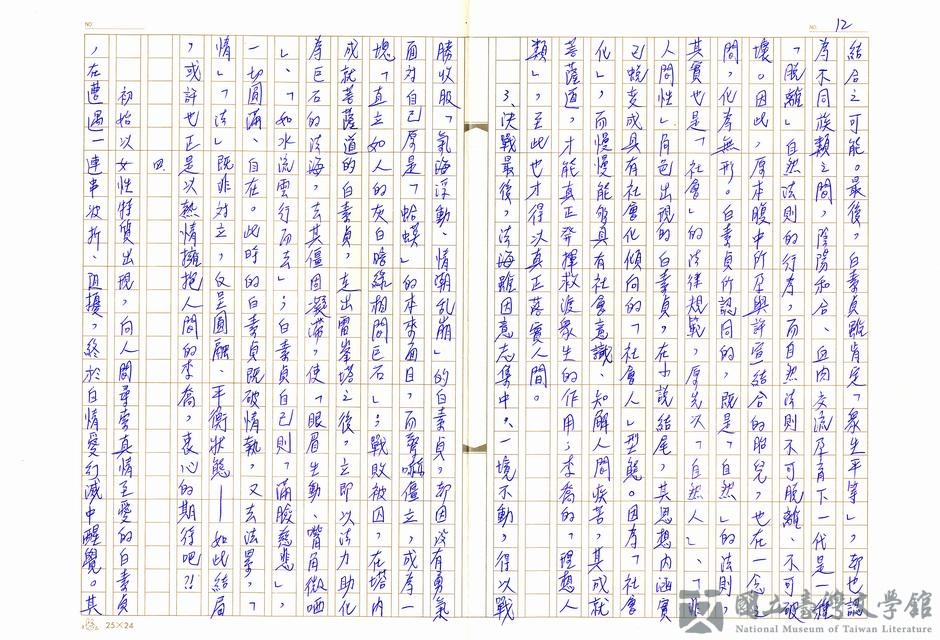 12
結合之可能。最後,白素貞雖肯定「眾生平等」,却也認
為不同族類之間,陰陽和合、血肉交流孕育下一代是一種
「脫離」自然法則的行為,而自然法則不可脫離、不可破
壞。因此,原本腹中所孕與許宣結合的胎兒,也在一念之
間,化為無形。白素貞所認同的,既是「自然」的法則,
其實也是「社會」的法律規範,原先以「自然人」、「非
人間性」角色出現的白素貞,在小說結尾,其思想內涵實
已蛻變成具有社會化傾向的「社會人」型態。因為「社會
化」,而慢慢能夠具有社會意識、知解人間疾苦,其成就
菩薩道,才能真正發揮救渡眾生的作用;李喬的「理想人
類」,至此也才得以真正落實人間。
3、決戰最後,法海雖因意志集中、一境不動,得以戰
勝收服「氣海浮動、情潮乱崩」的白素貞,却因沒有勇氣
面對自己原是「蛤蟆」的本來面目,而
僵立,成為一
塊「直立如人的灰白暗綠相間巨石」;戰敗被囚,在塔內
成就菩薩道的白素貞,走出雷峯塔之後,立即以法力助化
為巨石的法海,去其僵固凝滯,使「眼眉生動、嘴角微哂
」、「如水流雲行而去」;白素貞自己則「滿臉慈悲」,
一切圓滿、自在。此時的白素貞既破情執,又去法累,「
情」「法」既非對立,又呈圓融、平衡狀態——如此結局
,或許也正是以熱情擁抱人間的李喬,衷心的期待吧?!
四、
初始以女性特質出現,向人間尋索真情至愛的白素貞
,在遭遇一連串波折、阻擾,終於自情愛幻滅中醒覺。其
25×24
國立臺灣文學館
National Museum of Taiwan Literature